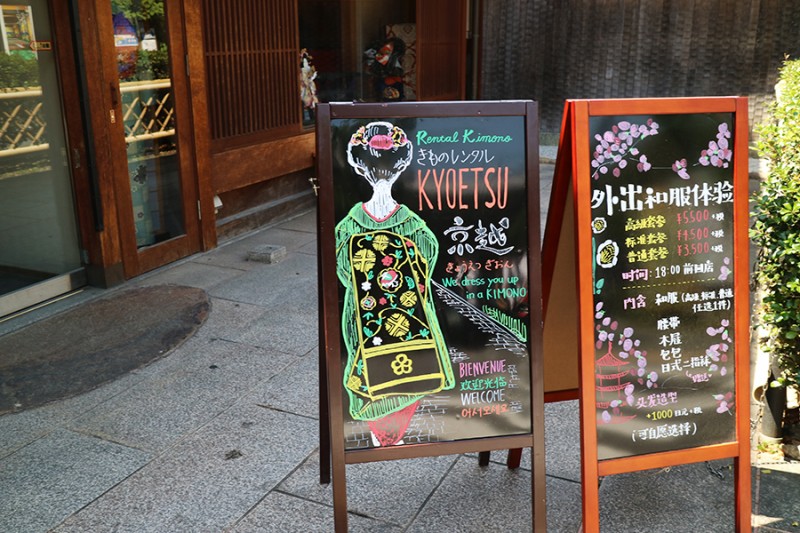 Rental Kimono
きものレンタル
KYOETSU
京越
きょうえつ ぎおん
We dress you up
in a KIMONO
BIENVENUE
欢迎光临
WELCOME
어서오세요
外出和服体验
高级套餐 ¥5,500+税
标准套餐 ¥4,500+税
普通套餐 ¥3,500+税
时间: 18:00 前回店
内含 和服 (高级,标准,普通
任选1件)
腰带
木屐
包包
日式二指袜
头发造型
+1000 日元+税
(可自愿选择)